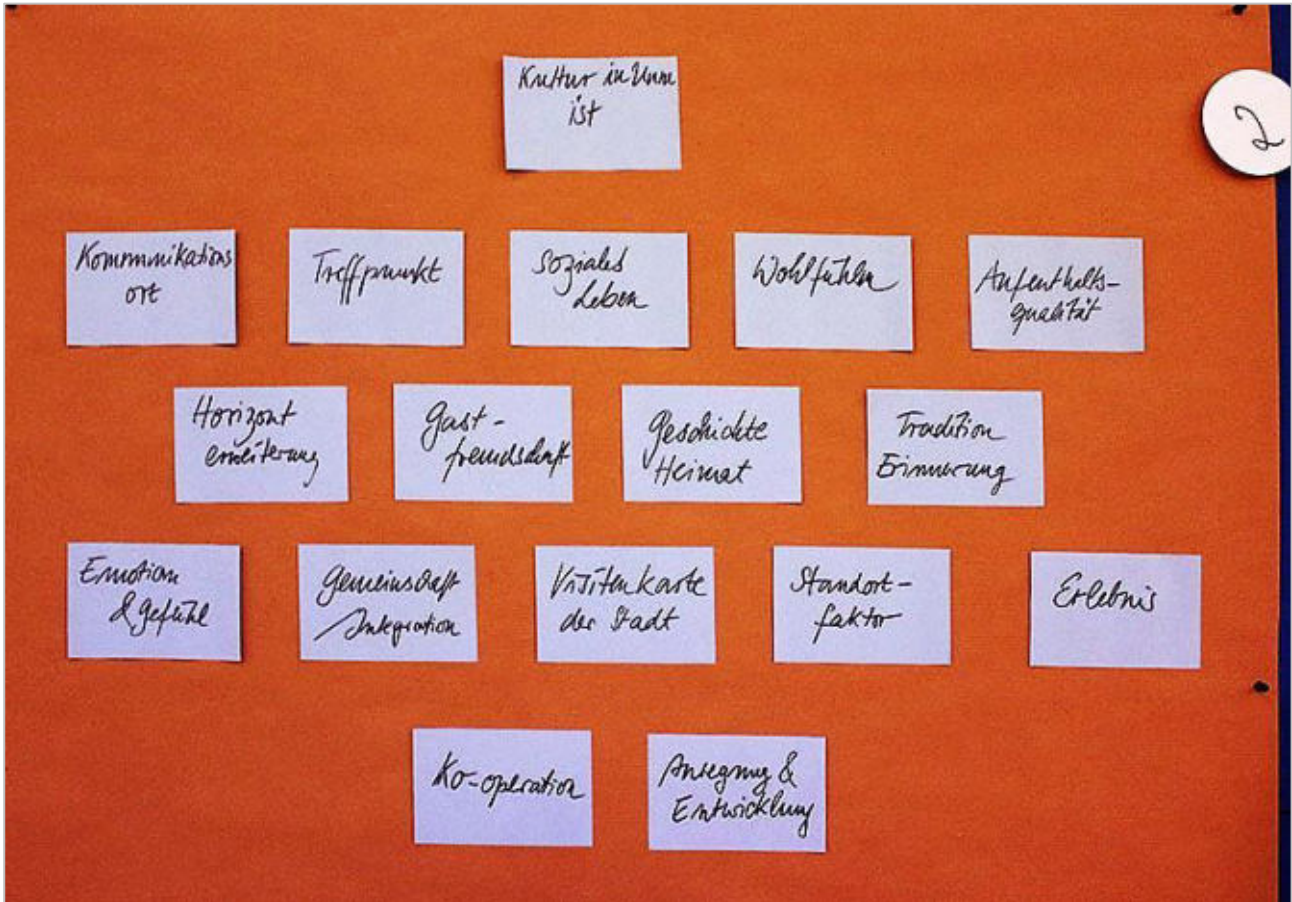 Kultur in Unna
ist
2
Kommunikations
ort
Treffpunkt
Soziales
Leben
Wohlfühlen
Aufenthalts-
qualität
Horizont
erweiterung
Gast-
freundschaft
Geschichte
Heimat
Tradition
Erinnerung
Emotion
& Gefühl
Gemeinschaft
/Integration
Visitenkarte
der Stadt
Standort-
faktor
Erlebnis
Ko-operation
Anregung &
Entwicklung